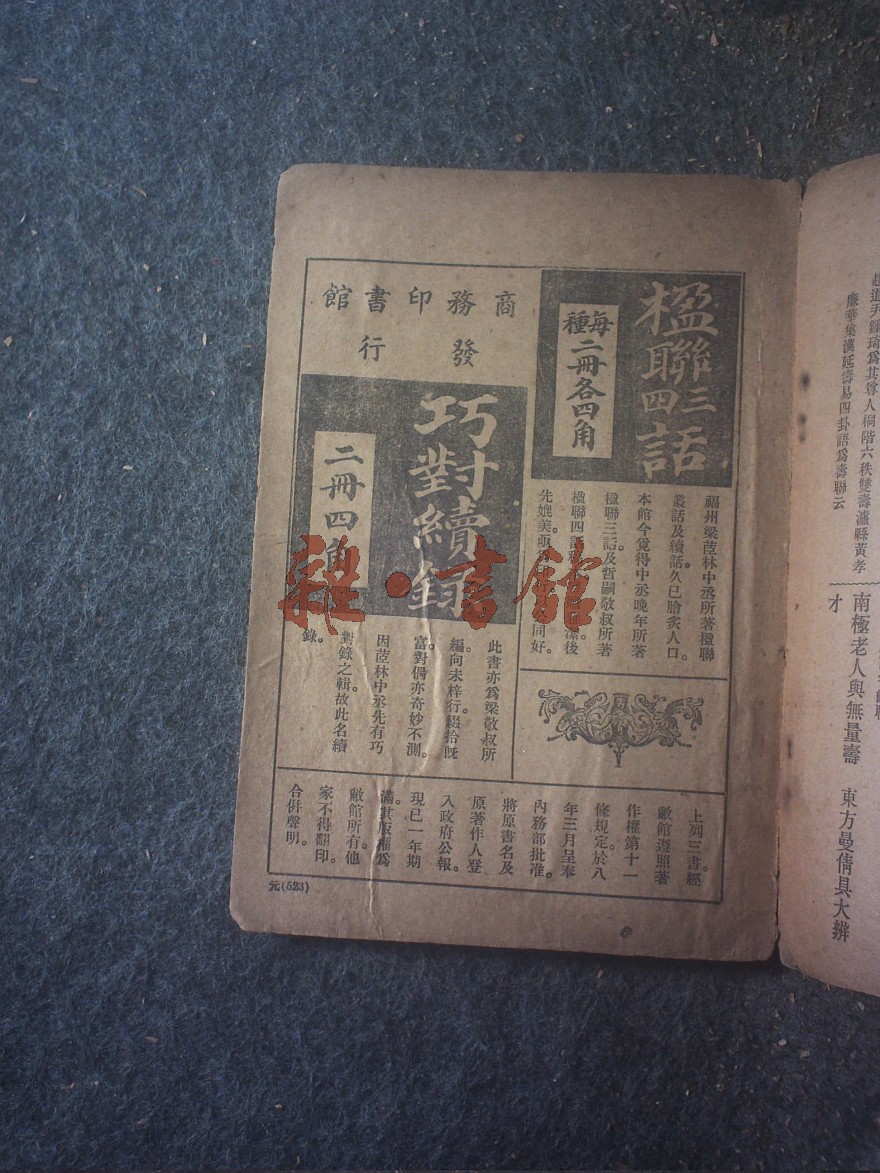 楹聯三四話
每種二冊各四角
福州梁茝林中丞所著楹聯
叢話及續話。久已膾炙人口。
本館今覓得中丞晚年所著
楹聯三話及哲嗣敬叔所著
楹聯四話
潔後
先媲美。
同好。
商務印書館
發行
巧對續錄
二冊四角
此書亦爲梁敬叔所
編。向未梓行。綴拾旣
富。對偶亦奇妙不測。
因茝林中丞先有巧
對錄之輯。故此名續
錄。
上列三書。經
敝館遵照著
作權第十一
條規定。於八
年三月呈奉
內務部批准。
將原書名及
原著作人登
入政府公報。
現已一年期
滿。其版權爲
敝館所有。他
家不得翻印。
合併聲明。
元(523)
趙道尹鍾琦爲其尊人桐階六秩雙壽瀘縣黃孝
廉華集漢延壽易四卦語爲壽聯云
南極老人與無量壽 東方曼倩具大辨
才
雜·書館